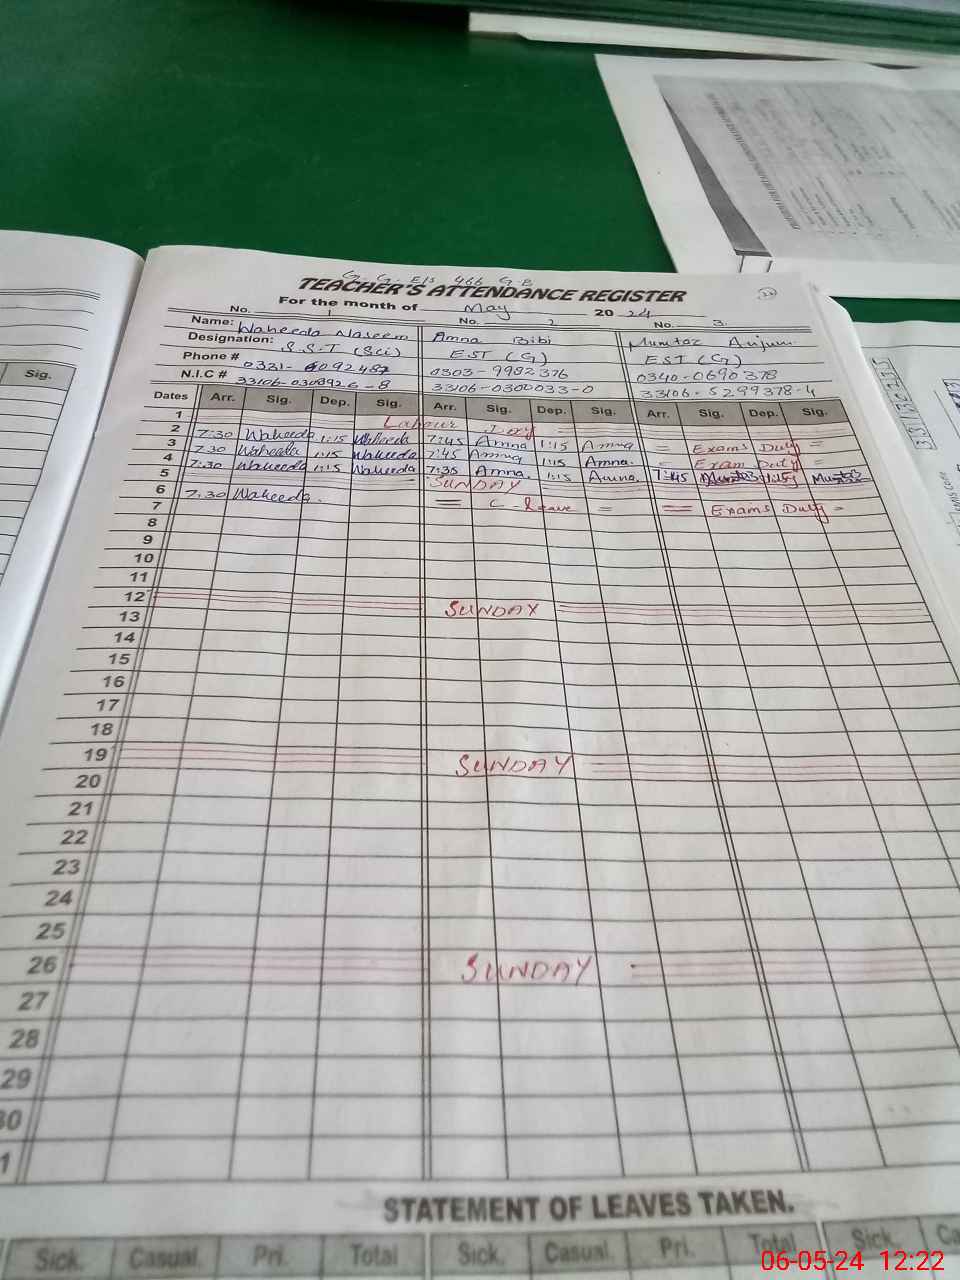 G. G. E/S 466 G B
TEACHER'S ATTENDANCE REGISTER
For the month of May 2024
No. 1 No. 2 No. 3
Name: Waheeda Naseem Amna Bibi Mumtaz Anjum
Designation: S.S.T (Sci) EST (G) EST (G)
Phone # 0303-9982376 0340-0690378
N.I.C # 33106-0300033-0 33106-5299378-4
Dates Arr. Sig. Dep. Sig. Arr. Sig. Dep. Sig. Arr. Sig. Dep. Sig.
1 Labour Day
2 7:30 Waheeda 1:15 Waheeda 7:45 Amna 1:15 Amna = Exams Duty =
3 7:30 Waheeda 1:15 Waheeda 7:45 Amna 1:15 Amna. = Exam Duty =
4 7:30 Waheeda 1:15 Waheeda 7:35 Amna. 1:15 Amna. 7:45
5 SUNDAY
6 7.30 Waheeda. = C-Leave = = Exams Duty =
7
8
9
10
11
12 SUNDAY
13
14
15
16
17
18
19 SUNDAY
20
21
22
23
24
25
26 SUNDAY
27
28
29
30
1
STATEMENT OF LEAVES TAKEN.
Sick. Casual. Pri. Total Sick. Casual. Pri. Total Sick. Ca
Sig.
06-05-24 12:22